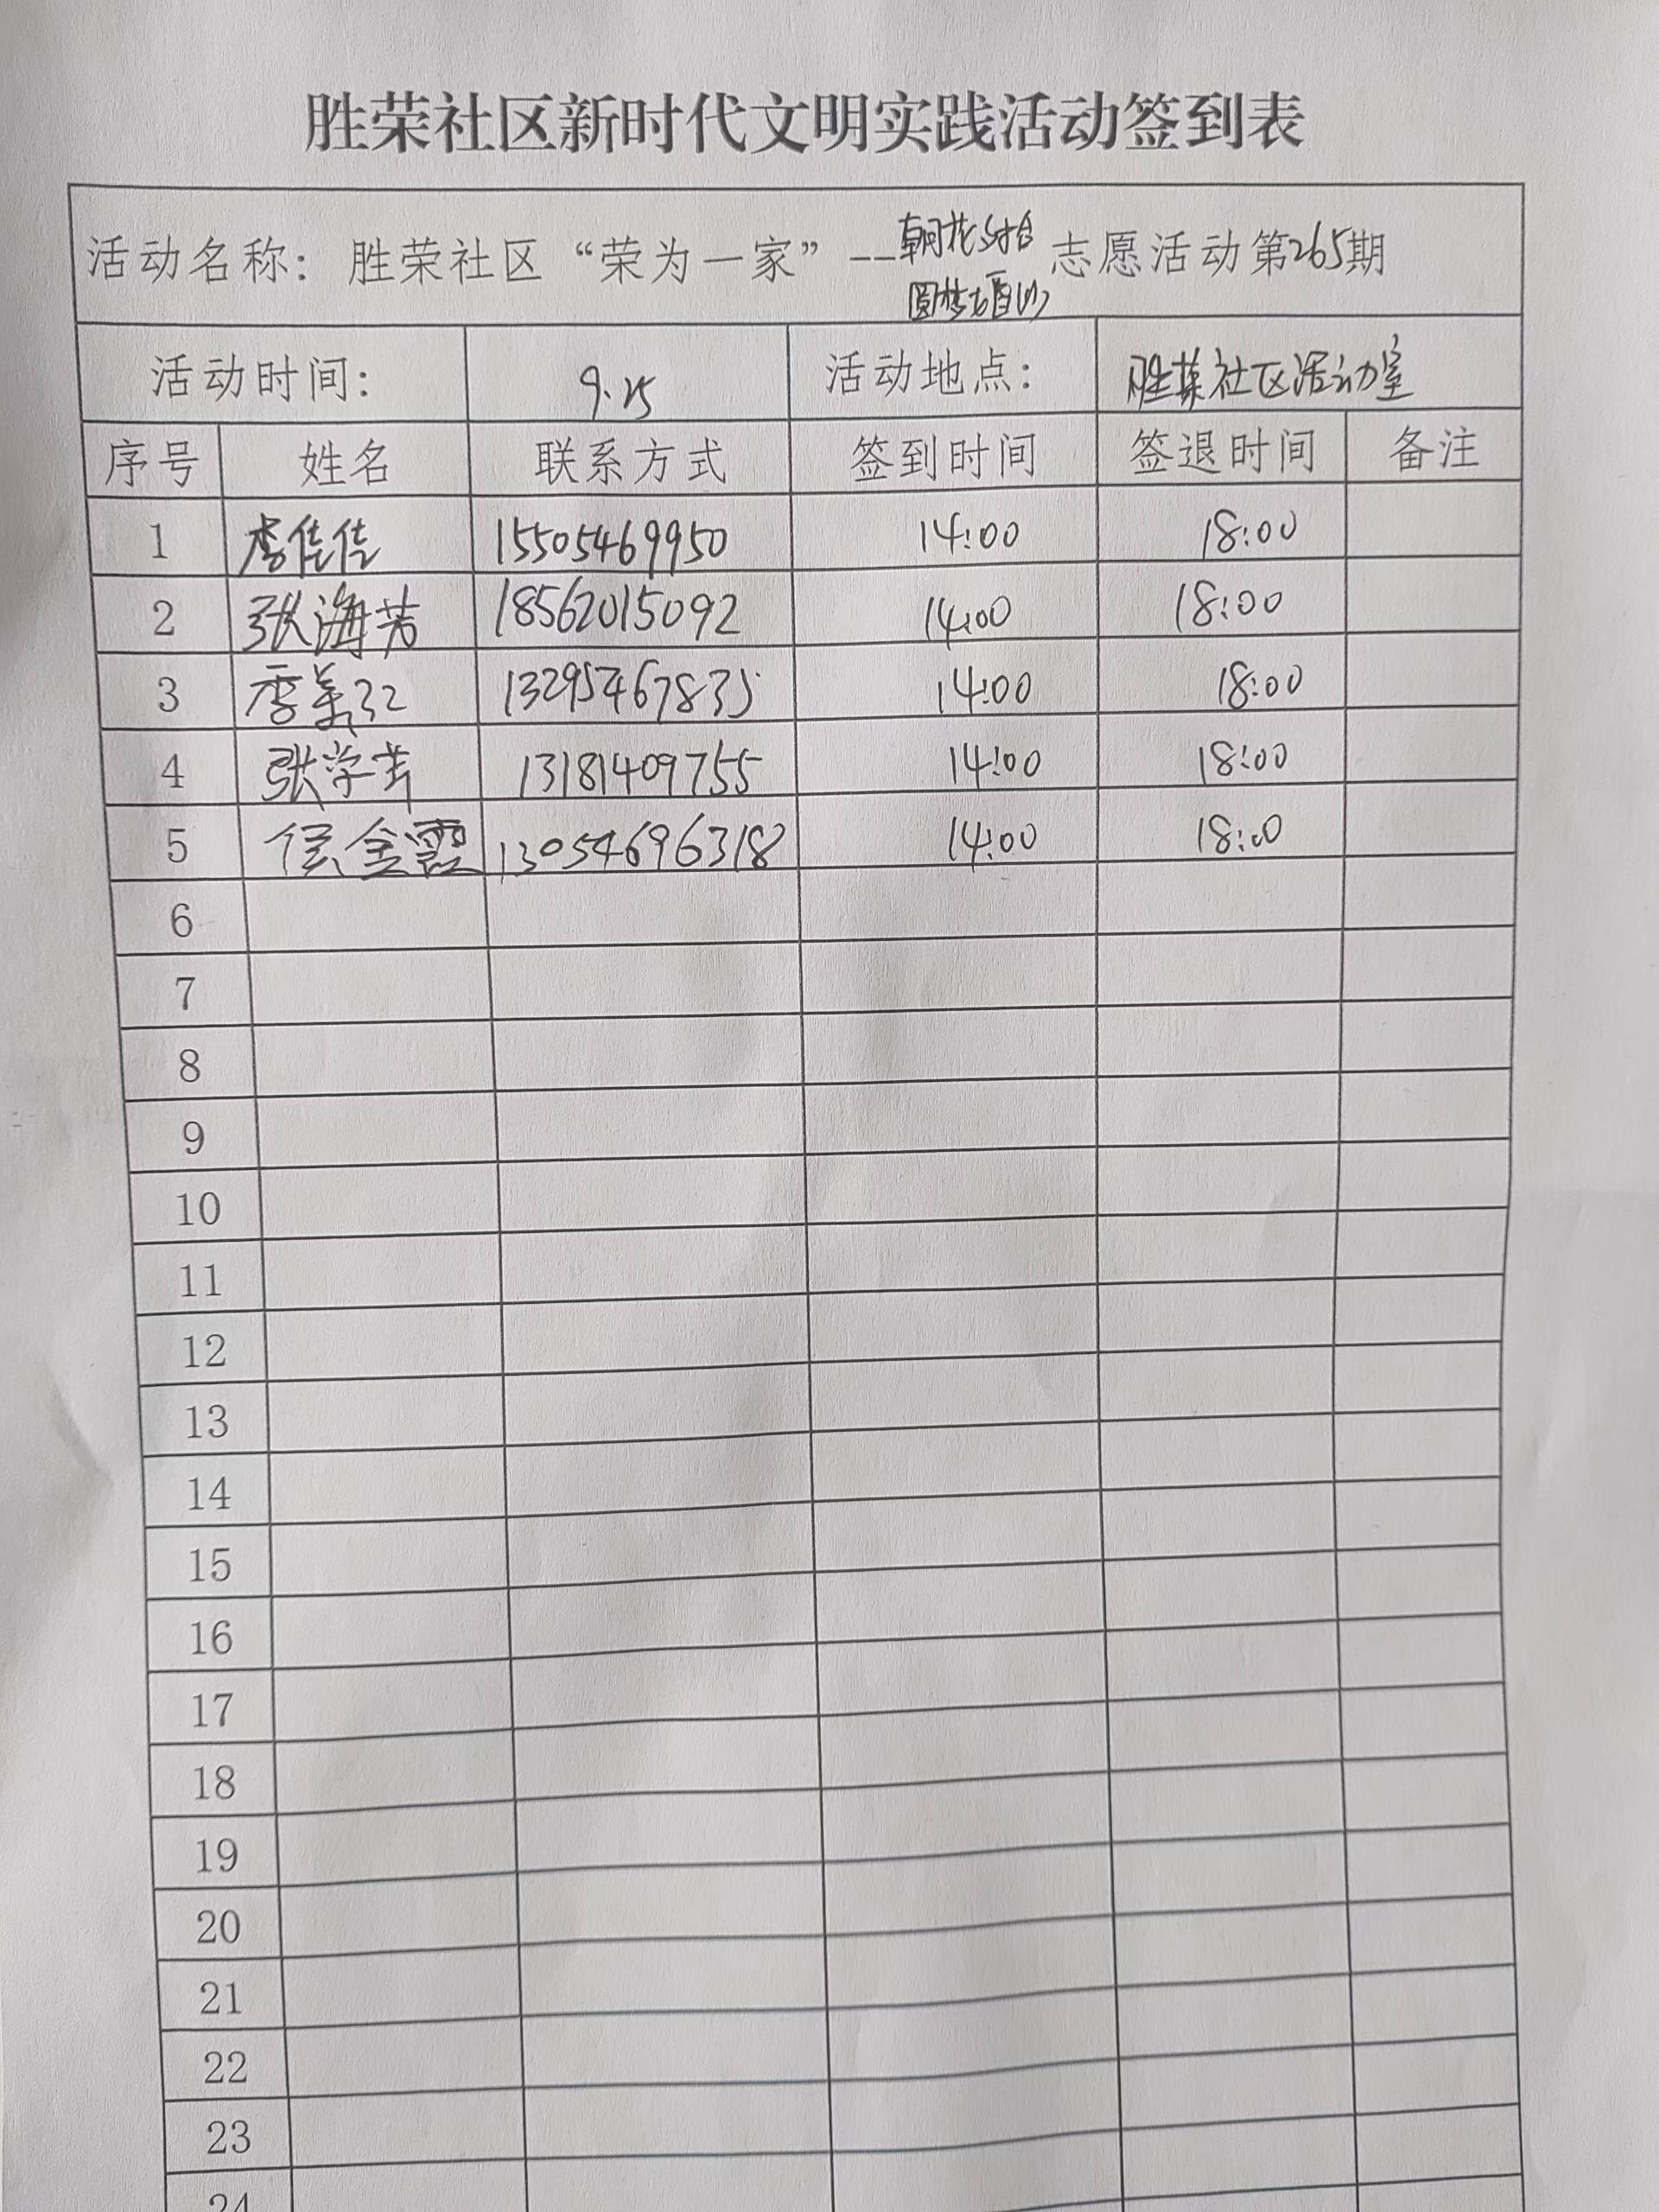 胜荣社区新时代文明实践活动签到表
活动名称：胜荣社区“荣为一家”--朝花夕拾 志愿活动第265期
圆梦
活动时间： 9.25 活动地点： 胜荣社区活动室
序号 姓名 联系方式 签到时间 签退时间 备注
1 李佳佳 15505469950 14:00 18:00
2 张海芳 18562015092 14:00 18:00
3 季美红 13295467835 14:00 18:00
4 张学 13181409755 14:00 18:00
5 侯金霞 13054696318 14:00 18:00
6
7
8
9
10
11
12
13
14
15
16
17
18
19
20
21
22
23
24